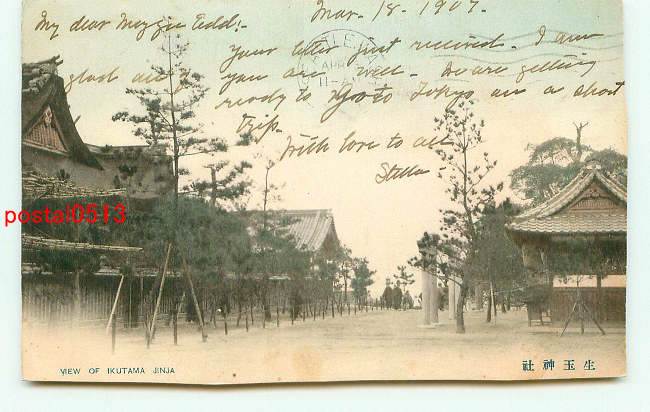 Mar. 18. 1907.
My dear Maggie Todd:-
Your letter just received. I am
glad all of you are well. We are getting
ready to go to Tokyo on a short
trip.
With love to all
Stella
postal0513
VIEW OF IKUTAMA JINJA
社神玉生